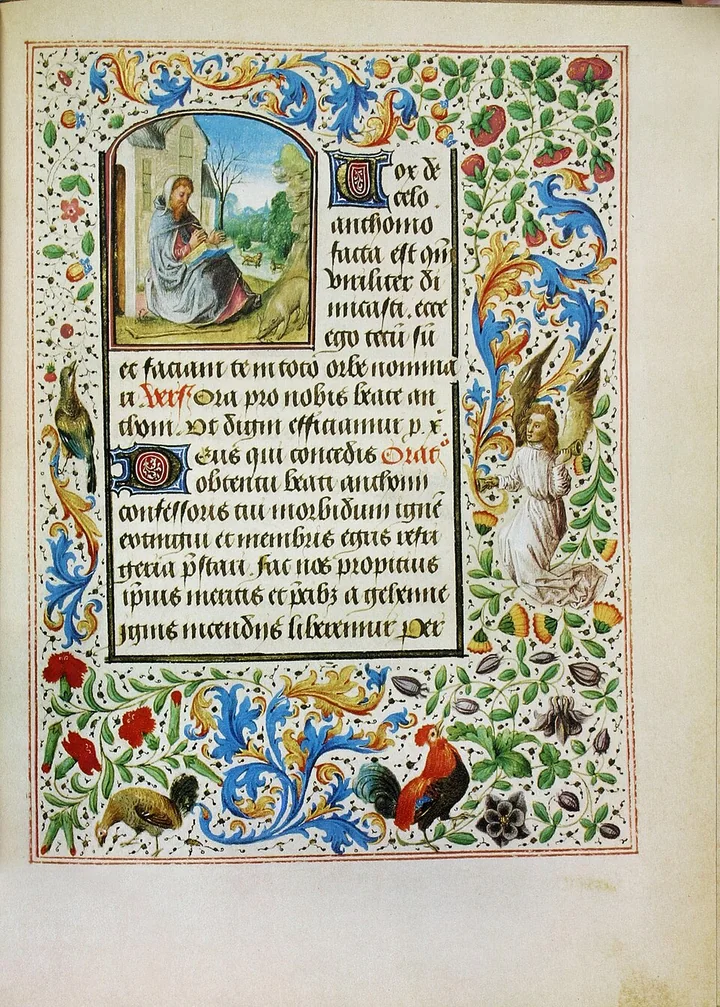 Vox de
celo
anthonio
facta est qm̄
viriliter di
micasti. ecce
ego tecū sū
et faciam te in toto orbe nomina
ri Vers⁹ Ora pro nobis beate an
thoni. Vt digni efficiamur p. x̄
Deus qui concedis Orat⁹
obtentu beati anthonii
confessoris tui morbidum ignē
extingui et membris egris refri
geria p̄stari. fac nos propitius
ip̄ius meritis et p̄cibꝫ a gehenne
ignis incendiis liberemur Per